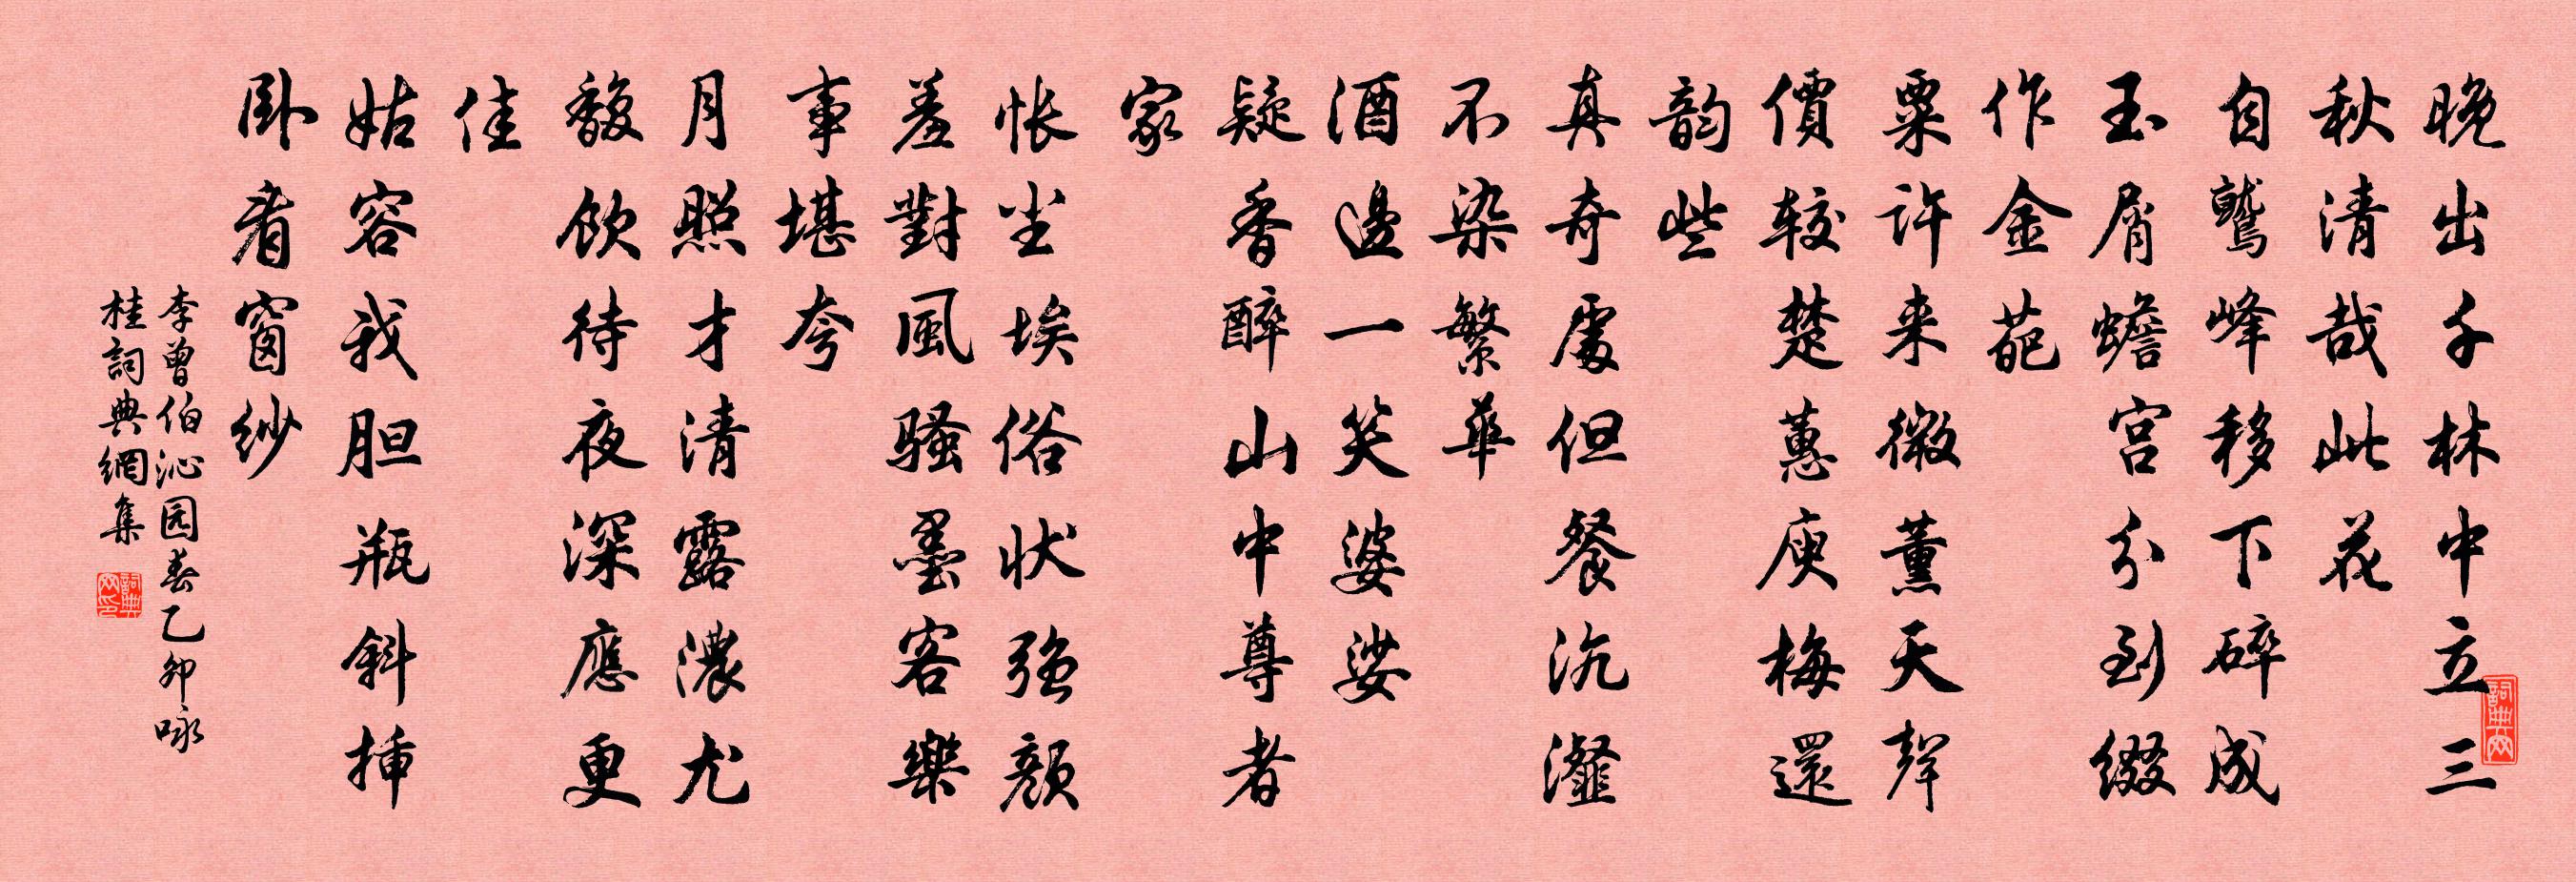 晚出千林中立三
秋清哉此花
自鹫峰移下碎成
玉屑蟾宫分到缀
作金葩
粟许来微薰天声
價较楚蕙庾梅還
韵些
真奇處但餐沆瀣
不染繁華
酒邊一笑婆娑
疑香醉山中尊者
家
怅尘埃俗状强颜
羞對風骚墨客樂
事堪夸
月照才清露濃尤
馥饮待夜深應更
佳
姑容我胆瓶斜揷
卧看窗纱
李曾伯沁园春乙卯咏
桂詞典網集
詞典网
詞典网印